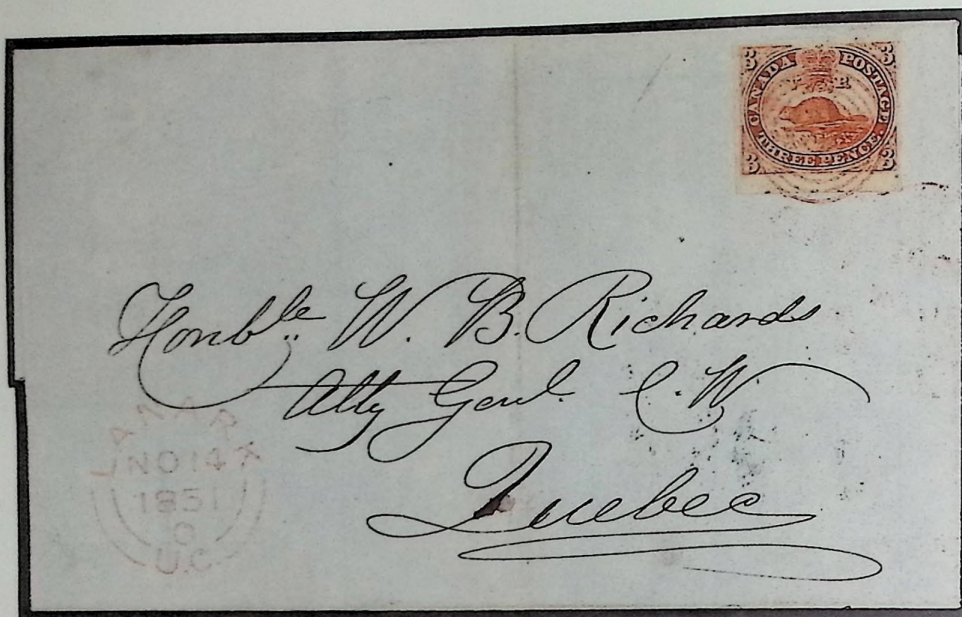 3 3
CANADA POSTAGE
V R
THREE PENCE
3 3
Honble W. B. Richards
Atty Genl. C. W.
Quebec
LANARK
NO 14
1851
U.C.